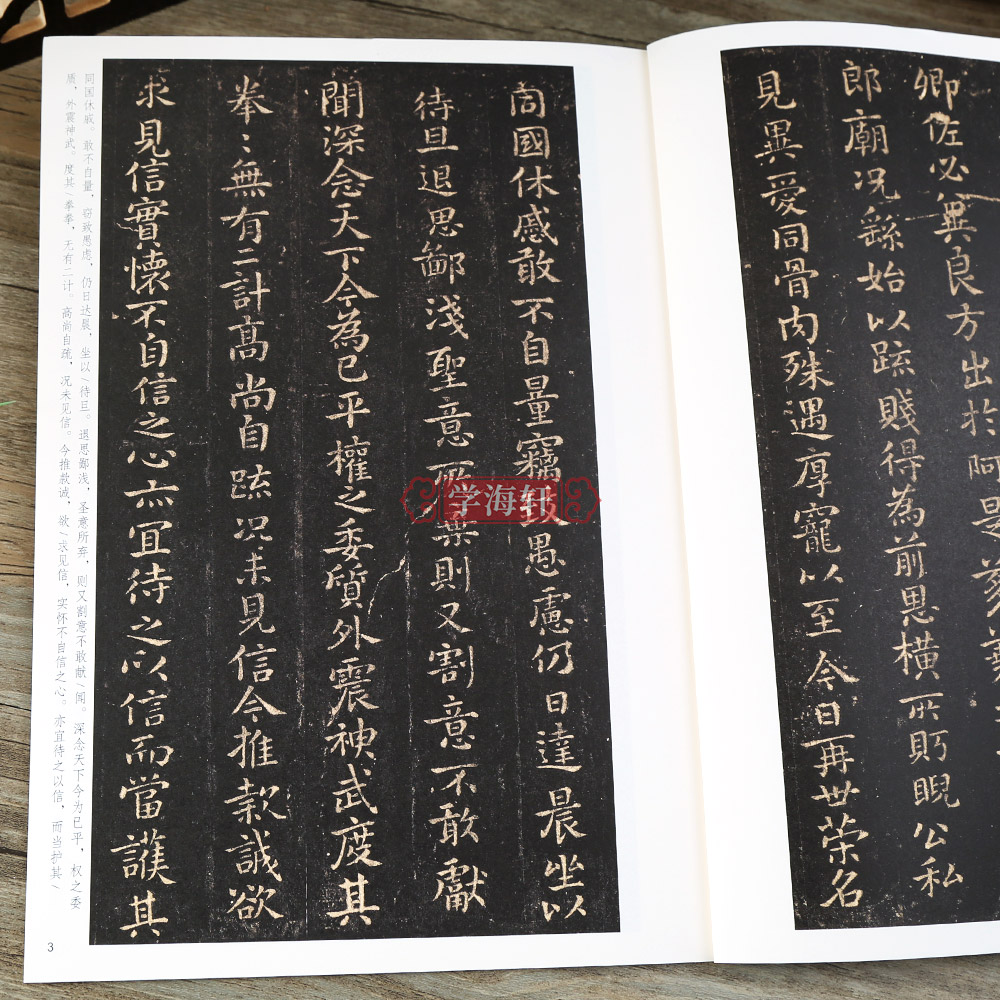 卿佐必冀良方出於阿是芻蕘
郎廟况繇始以疏賤得為前恩橫所眄睨公私
見異愛同骨肉殊遇厚寵以至今日再世榮名
同國休慼敢不自量竊致愚慮仍日達晨坐以
待旦退思鄙淺聖意所棄則又割意不敢獻
聞深念天下今為已平權之委質外震神武度其
拳〻無有二計高尚自疏况未見信今推款誠欲
求見信實懷不自信之心亦宜待之以信而當護其
同国休戚。敢不自量，窃致愚虑，仍日达晨，坐以/待旦。退思鄙浅，圣意所弃，则又割意不敢献/闻。深念天下今为已平，权之委
质，外震神武。度其/拳拳，无有二计。高尚自疏，况未见信。今推款诚，欲/求见信，实怀不自信之心。亦宜待之以信，而当护其/
3
学海轩